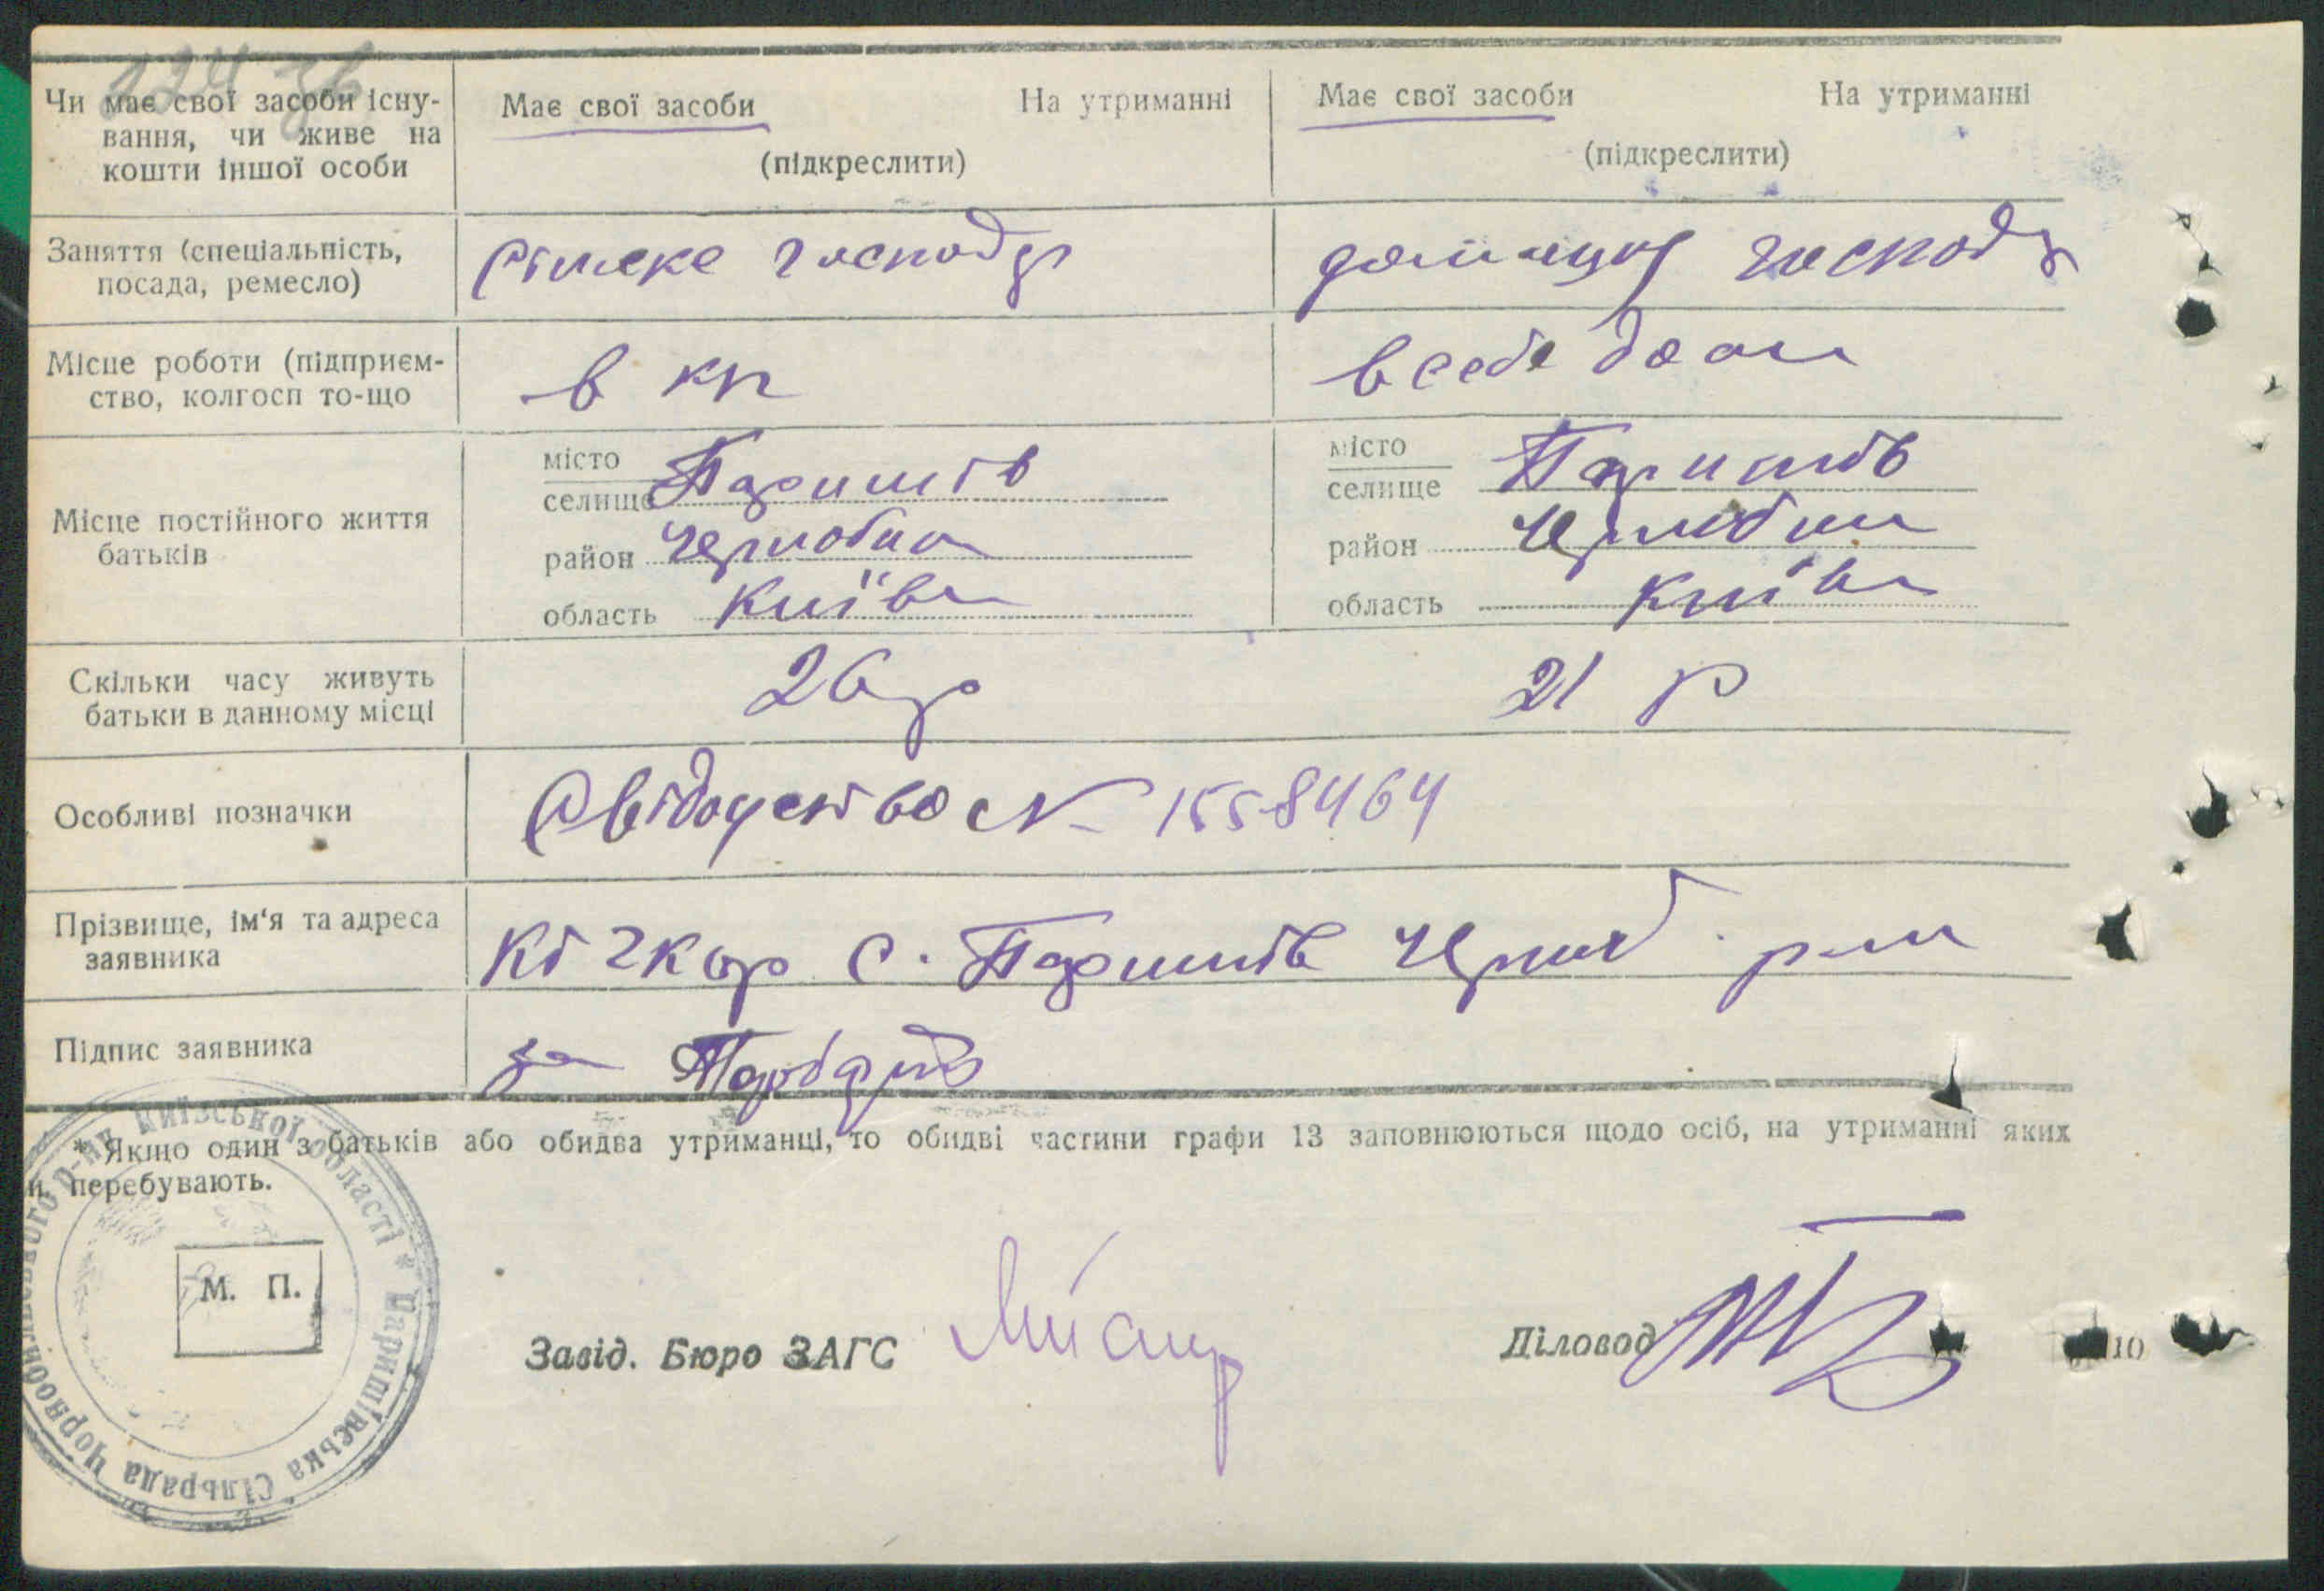 Чи має свої засоби існу-
вання, чи живе на
кошти іншої особи
Має свої засоби На утриманні
(підкреслити)
Має свої засоби На утриманні
(підкреслити)
Заняття (спеціальність,
посада, ремесло)
сільске господр
домашнє господр
Місце роботи (підприєм-
ство, колгосп то-що
в кп
в себе дома
Місце постійного життя
батьків
місто
селище Паришів
район Чернобил
область Київ
місто
селище Паришів
район Чернобил
область Київ
Скільки часу живуть
батьки в данному місці
26 р
21 р
Особливі позначки
Свідоцтво № 1558464
Прізвище, ім'я та адреса
заявника
с. Паришів Черноб р-н
Підпис заявника
за
* Якщо один з батьків або обидва утриманці, то обидві частини графи 13 заповнюються щодо осіб, на утриманні яких
перебувають.
М. П.
Чорнобильського р-ну Київської області * Паришівська Сільрада
Завід. Бюро ЗАГС
Діловод
10